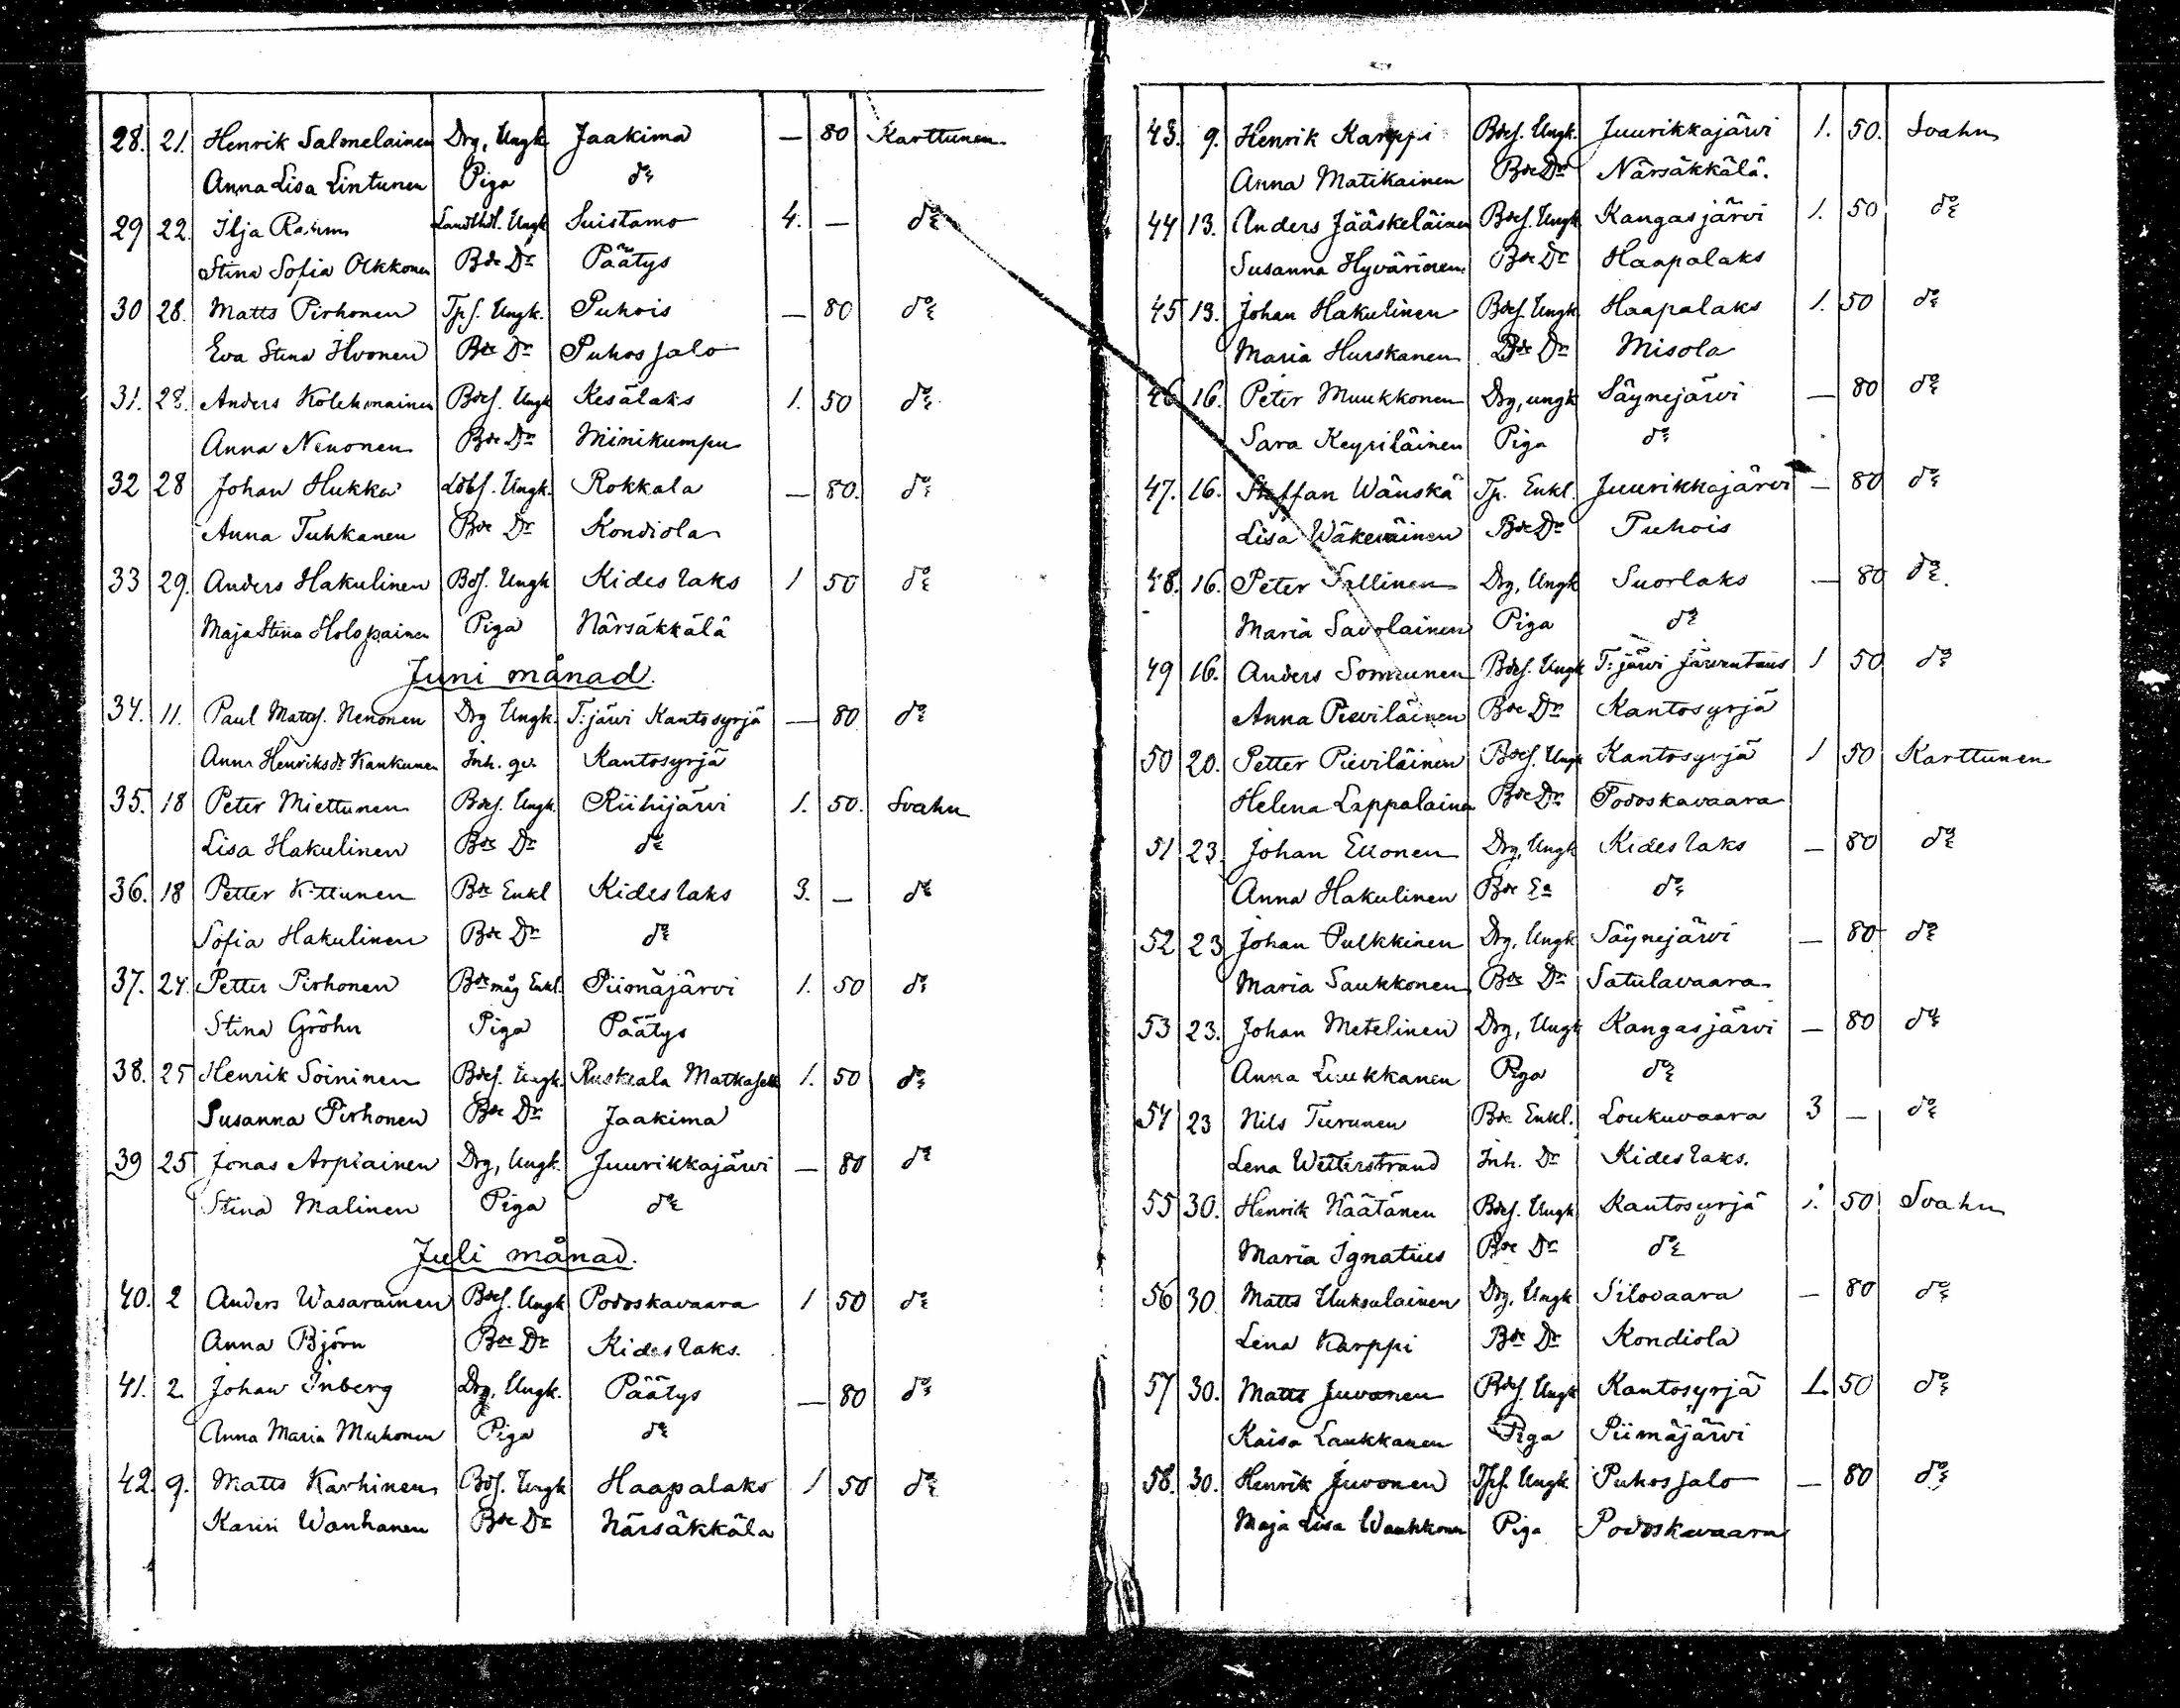 28. 21. Henrik Salonelainen Drg, Ungk Jaakima — 80 Karttunen
Anna Lisa Lintunen Piga do
29 22. Ilja Landthdl. Ungk Suistamo 4. — do
Stina Sofia Olkkonen Bde Dr Päätys
30 28. Matts Pirhonen Tpf. Ungk. Puhois — 80 do
Eva Stina Ihvonen Bde Dr Puhossalo
31. 28. Anders Kolehmainen Bdef. Ungk Kesälaks 1. 50 do
Anna Nenonen Bde Dr Minikumpu
32 28 Johan Hukka Ldbf. Ungk. Rokkala — 80. do
Anna Tuhkanen Bde Dr Kondiola
33 29. Anders Hakulinen Bdf. Ungk Kideslaks 1 50 do
Maja Stina Holopainen Piga Närsäkkälä
Juni månad.
34. 11. Paul Mattsf. Nenonen Drg Ungk. T:järvi Kantosyrjä — 80 do
Anna Henriksdr Kankunen Inh. qv. Kantosyrjä
35. 18 Peter Miettunen Bdef. Ungk. Riihijärvi 1. 50. Svahn
Lisa Hakulinen Bde Dr do
36. 18 Petter Bde Enkl Kideslaks 3. — do
Sofia Hakulinen Bde Dr do
37. 24. Petter Pirhonen Bde måg Enkl. Piimäjärvi 1. 50 do
Stina Gröhn Piga Päätys
38. 25 Henrik Soininen Bdef. Ungk. Ruskeala 1. 50 do
Susanna Pirhonen Bde Dr Jaakima
39 25 Jonas Arpiainen Drg, Ungk. Juurikkajärvi — 80 do
Stina Malinen Piga do
Juli månad.
40. 2 Anders Wasarainen Bdef. Ungk Podoskavaara 1 50 do
Anna Björn Bde Dr Kideslaks.
41. 2. Johan Inberg Drg, Ungk. Päätys — 80 do
Anna Maria Muhonen Piga do
42. 9. Matts Karhinen Bdf. Ungk Haapalaks 1 50 do
Karin Wanhanen Bde Dr Närsäkkäla
43. 9. Henrik Karppi Bdef. Ungk. Juurikkajärvi 1. 50. Svahn
Anna Matikainen Bde Dr Närsäkkälä.
44 13. Anders Jääskeläinen Bdef. Ungk Kangasjärvi 1. 50 do
Susanna Hyvärinen Bde Dr Haapalaks
45 13. Johan Hakulinen Bdef. Ungk Haapalaks 1. 50 do
Maria Hurskanen Bde Dr Misola
46 16. Peter Muukkonen Drg, ungk Säynejärvi — 80 do
Sara Keypiläinen Piga do
47. 16. Staffan Wänskä Tp. Enkl. Juurikkajärvi — 80 do
Lisa Wäkeväinen Bde Dr Puhois
48. 16. Peter Drg, Ungk Suorlaks — 80 do
Maria Savolainen Piga do
49 16. Anders Bdef. Ungk T:järvi 1 50 do
Anna Pieviläinen Bde Dr Kantosyrjä
50 20. Petter Pieviläinen Bdef. Ungk Kantosyrjä 1 50 Karttunen
Helena Lappalainen Bde Dr Podoskavaara
51 23. Johan Ellonen Drg, Ungk Kideslaks — 80 do
Anna Hakulinen Bde Ea do
52 23 Johan Pulkkinen Drg, Ungk Säynejärvi — 80 do
Maria Saukkonen Bde Dr Satulavaara
53 23. Johan Metelinen Drg, Ungk Kangasjärvi — 80 do
Anna Luukkanen Piga do
54 23 Nils Turunen Bde Enkl. Loukuvaara 3 — do
Lena Wetterstrand Inh. Dr Kideslaks.
55 30. Henrik Näätänen Bdef. Ungk Kantosyrjä 1. 50 Svahn
Maria Ignatius Bde Dr do
56 30. Matts Uuksulainen Drg, Ungk Silovaara — 80 do
Lena Karppi Bde Dr Kondiola
57 30. Matts Juvonen Bdef. Ungk Kantosyrjä 1. 50 do
Kaisa Laukkanen Piga Piimäjärvi
58. 30. Henrik Juvonen Tpf. Ungk Puhossalo — 80 do
Maja Lisa Piga Podoskavaara